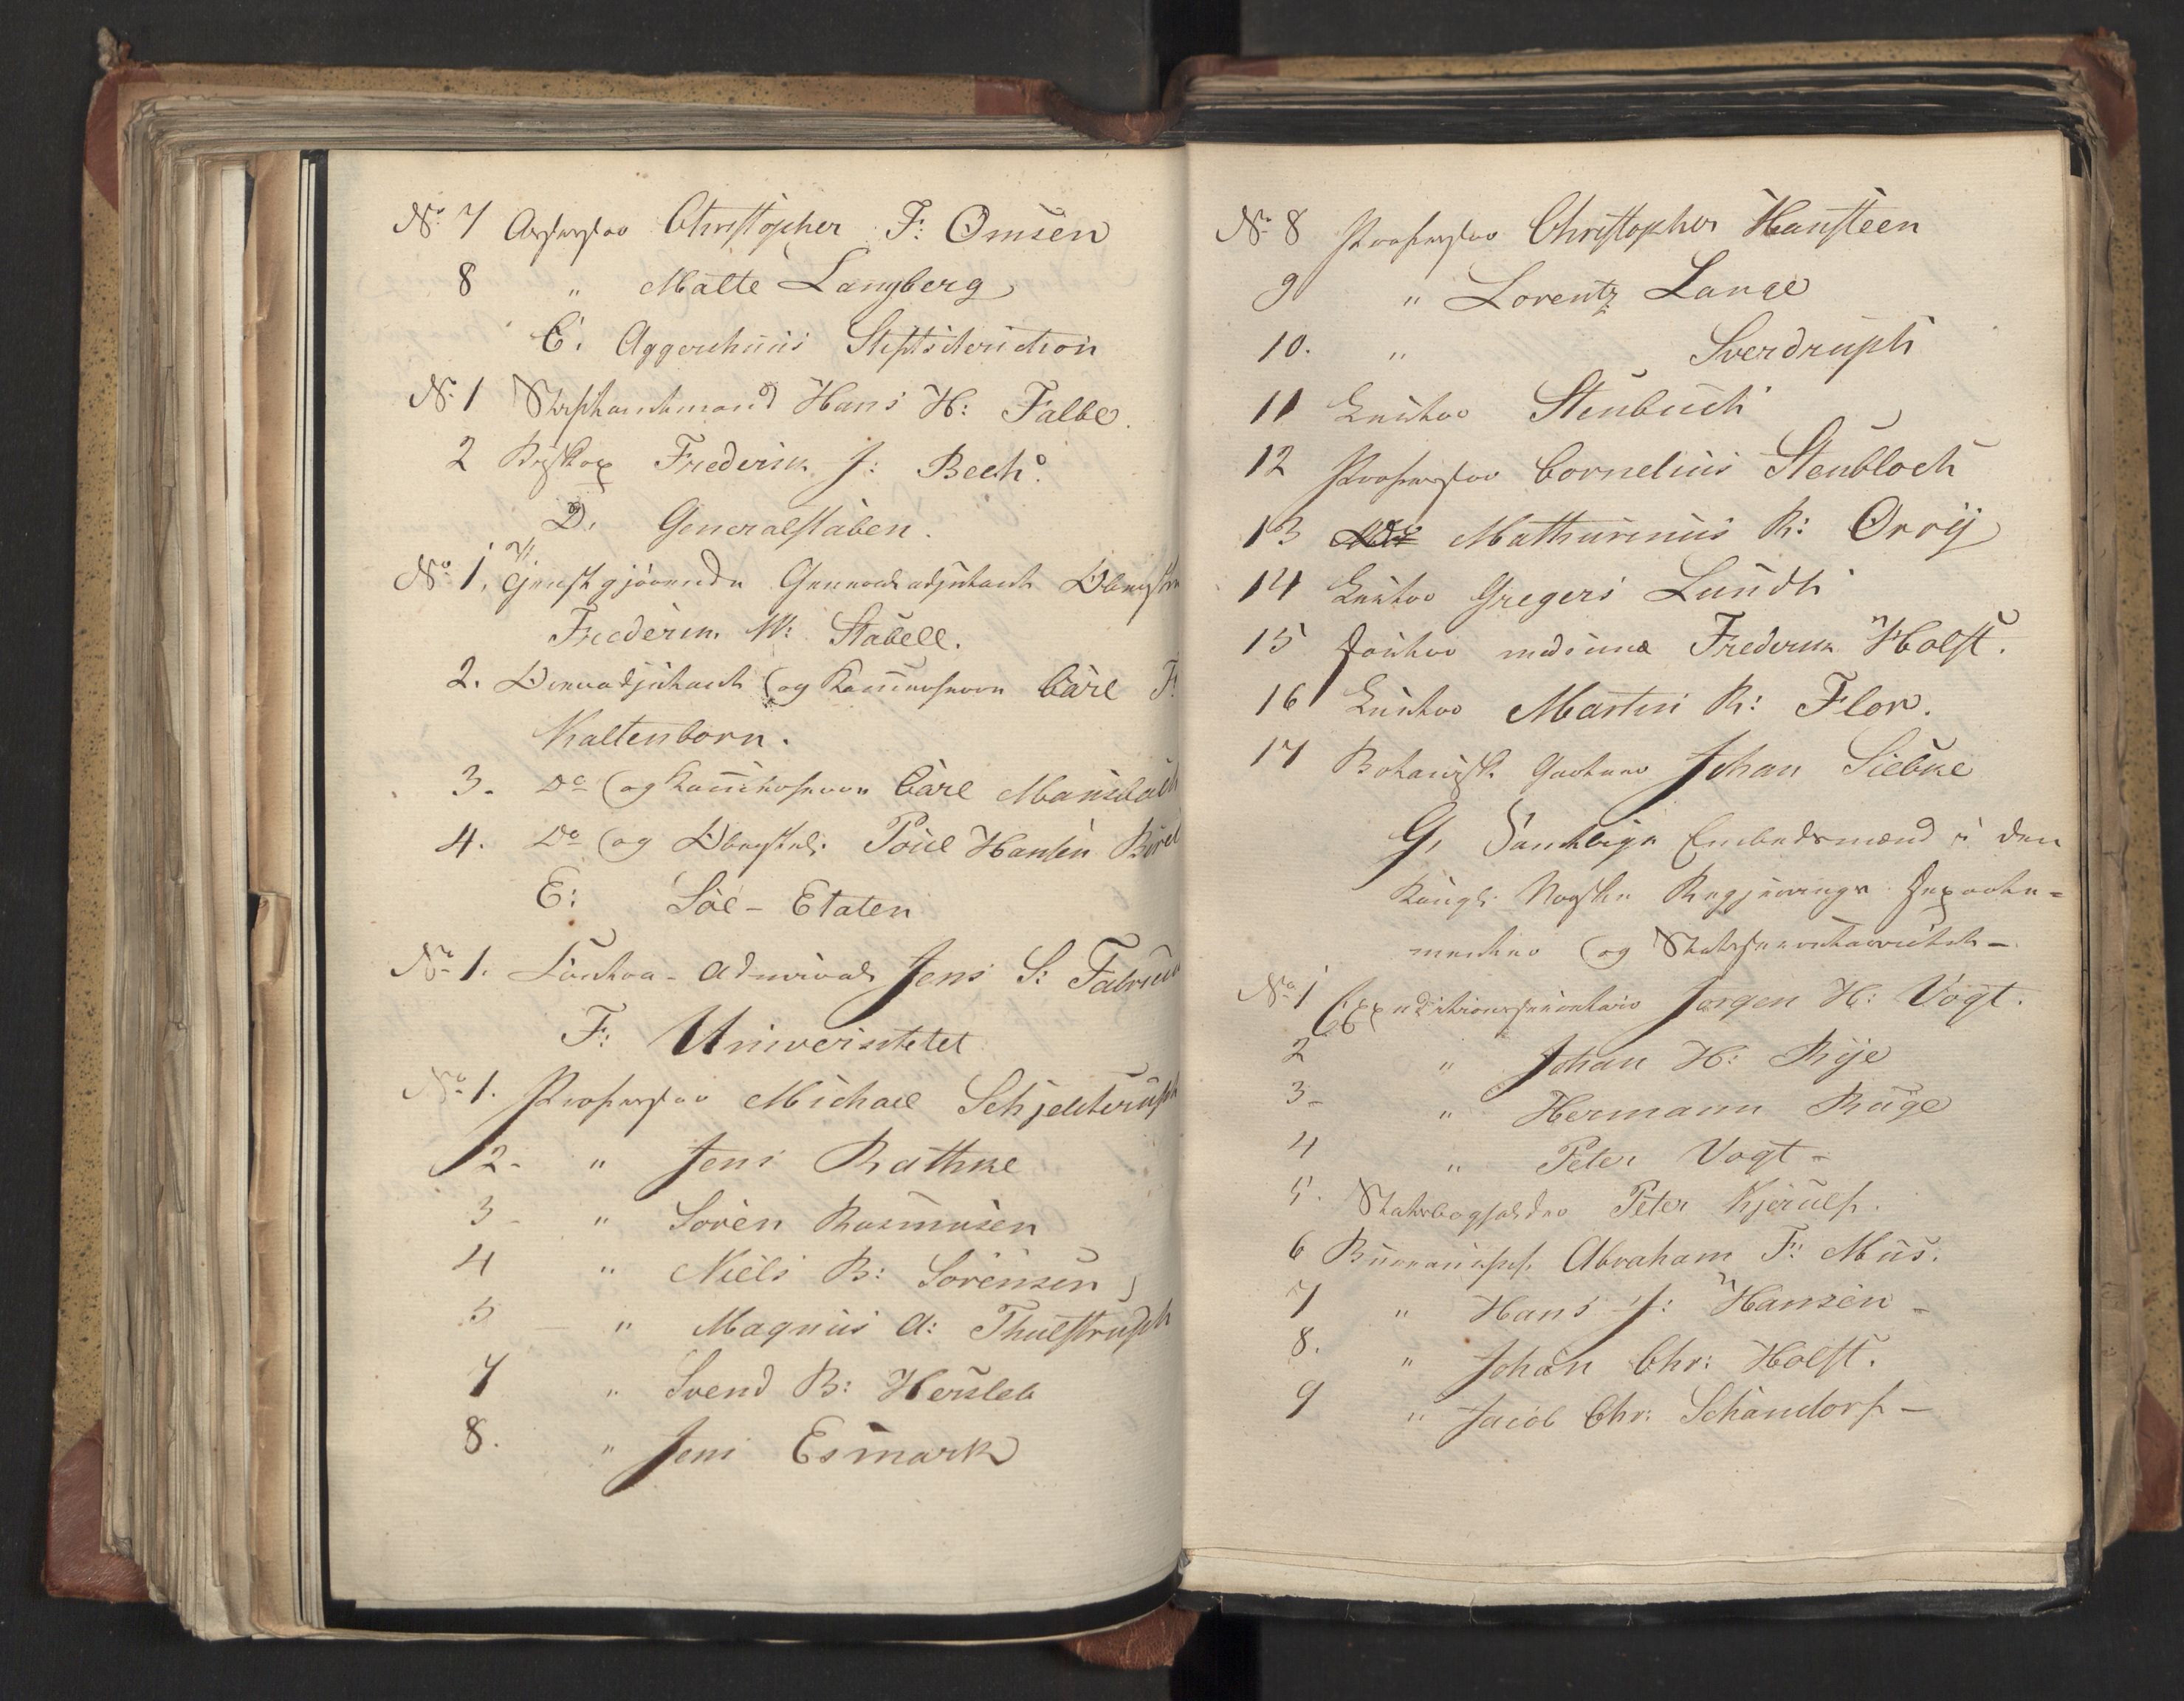 No 7 Assessor Christopher F: Omsen
8 " Malte Langberg
C. Aggershuus Stiftsdirection
No 1 Stiftsamtmand Hans H: Falbe.
2 Biskop Frederik J: Bech.
D. Generalstaben.
No 1. Tjenstgjørende Generaladjutant Oberste
Frederik W: Stabell.
2. Overadjutant (og Kammerherre Carl F:
Kaltenborn.
3. Do (og Kammerherre Carl Mansbach
4. Do (og Oberstl: Poul Hansen Birch
E: Søe-Etaten
No 1. Contra-Admiral Jens S: Fabricius
F: Universitetet
No 1. Professor Michael Schjelderuph
2- " Jens Rathke
3- " Sören Rasmusen
4 " Niels B: Sörensen
5 — " Magnus A: Thulstruph
7 " Svend B: Hersleb
8. " Jens Esmark
No 8 Professor Christopher Hansteen
9 " Lorentz Lange
10. " Sverdruph
11 Lector Stenbuch
12 Professor Cornelius Stenbloch
13 Mathurinus R: Orry
14 Lector Gregers Lundh
15 Doctor medicinæ Frederik Holst.
16 Lector Martin R: Flor.
17 Botanisk Gartner Johan Siebke
G, Samtlige Embedsmænd i den
Kongl: Norske Regjerings Departe=
menter (og Statssecretariatet —
No 1 Expeditionssecretair Jørgen H: Vogt.
2 " Johan H: Rye
3- " Hermann Ruge
4 " Peter Vogt —
5. Statsbogholder Peter Kjerulf.
6 Bureauchef Abraham F: Mus.
7 " Hans J: Hansen —
8. " Johan Chr: Holst.
9 " Jacob Chr: Schandorf —